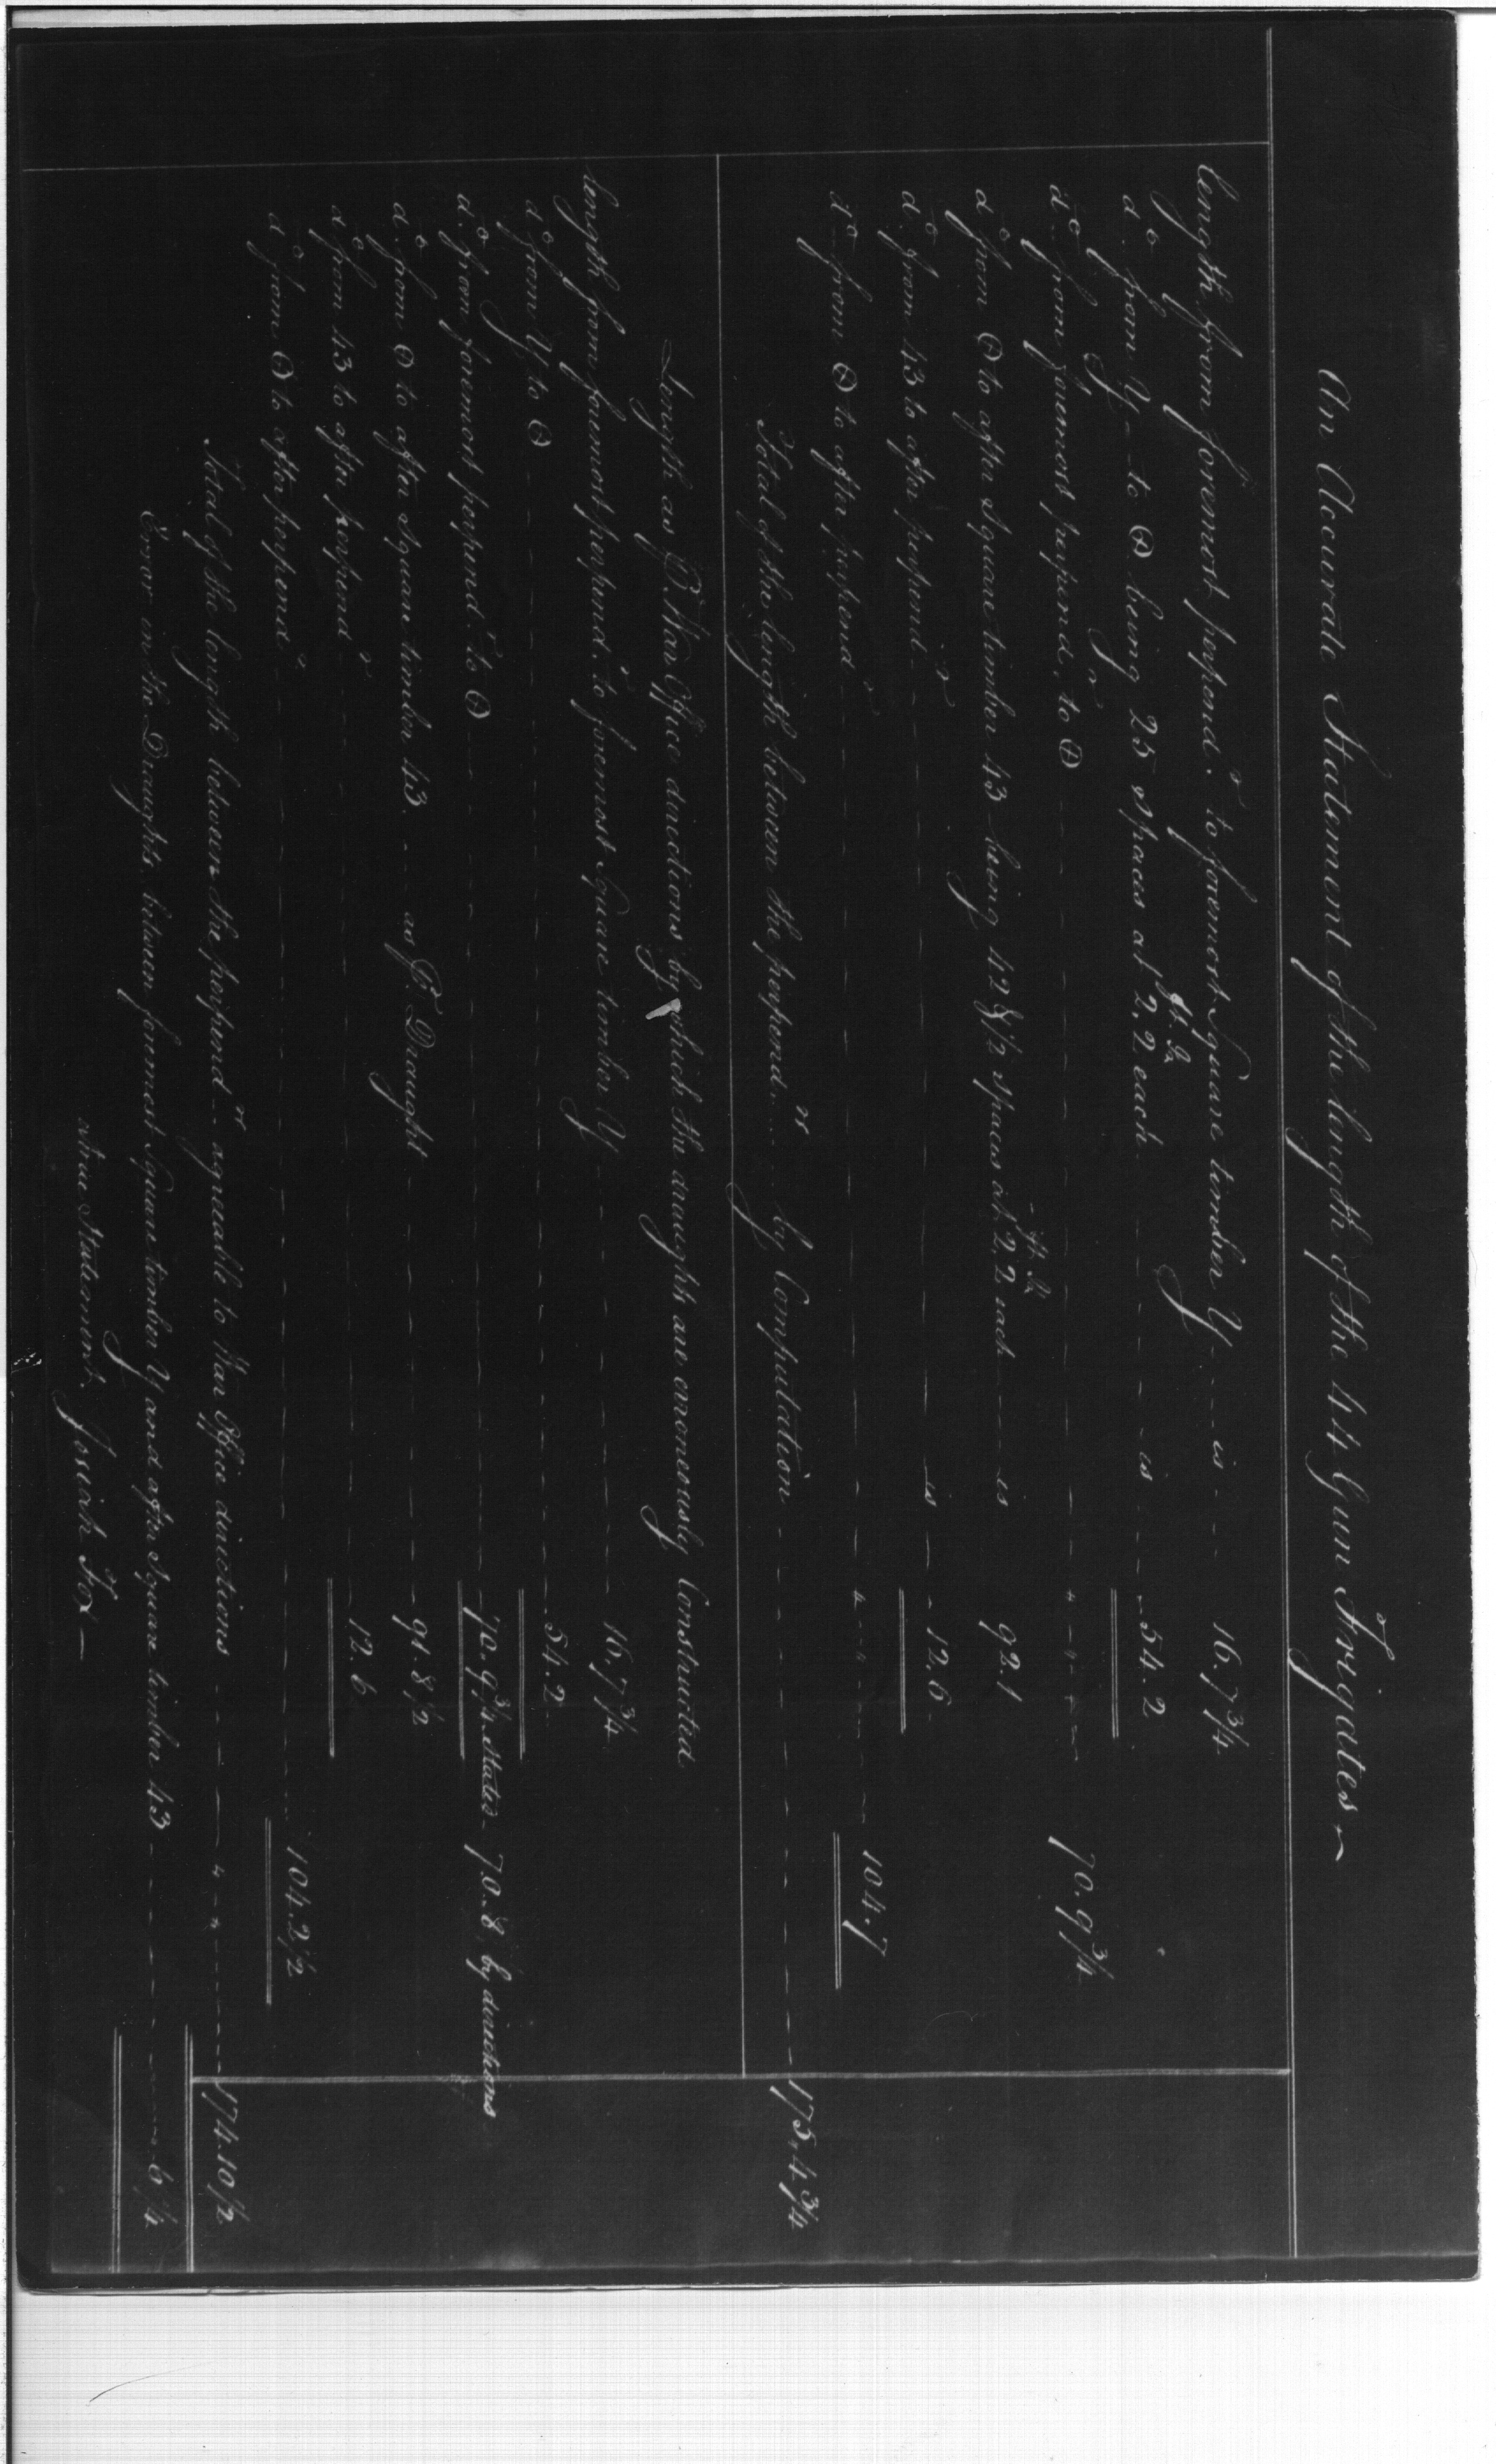 An Accurate Statement of the length of the 44 Gun Frigates
length from foremost perpend.r to foremost Square timber Y - - - is - - 16.7 3/4
do from Y - to ⊕ being 25 spaces at 2ft. 2In each - - - is - - - 54.2
do from foremost perpend.r to ⊕ - - - " - " - - - 70.9 3/4
do from ⊕ to after Square timber 43 - being 42 1/2 spaces at 2ft. 2In each - - is 92.1
do from 43 to after perpend.r - - - is - - 12.6
do from ⊕ to after perpend.r - - - " - - - 104.7
Total of the length between the perpend.rs by Computation - - - 175.4 3/4
Length as P. War Office directions by which the draughts are erroneously Constructed
length from foremost perpend.r to foremost Square timber Y - - - 16.7 3/4
do from Y to ⊕ - - - 54.2
do from foremost perpend.r to ⊕ - - - 70.9 3/4 States - 70.8, by directions
do from ⊕ to after Square timber 43. - - as P. Draught - - - 91.8 1/2
do from 43 to after perpend.r - - - 12.6
do from ⊕ to after perpend.r - - - 104.2 1/2
Total of the length between the perpend.rs agreeable to War Office directions - - - " - " - - - 174.10 1/2
Error in the Draughts between foremost Square timber Y and after Square timber 43 - - - 6 1/4
true Statement. Josiah Fox -